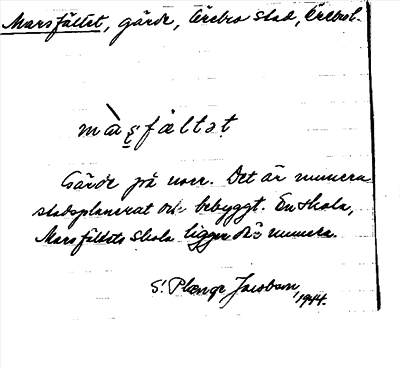 Marsfältet, gärde, Örebro stad, Örebrol.
màṣfæltət
Gärde på norr. Det är numera
stadsplanerat och bebyggt. En skola,
Marsfältets skola ligger där numera.
S. Plænge Jacobson, 1944.